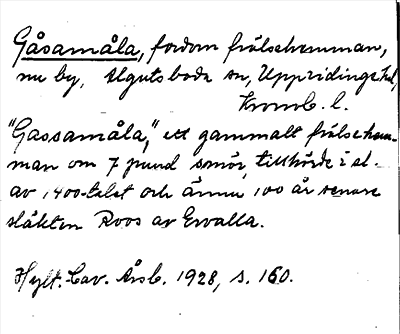 Gåsamåla, fordom frälsehemman,
nu by, Älguts boda sn, Uppvidinge hd,
Kronob. l.
"Gassamåla," ett gammalt frälsehem-
man om 7 pund smör, tillhörde i sl.
av 1400-talet och ännu 100 år senare
släkten Roos av Ervalla.
Hylt.-Cav. Årsb. 1928, s. 160.